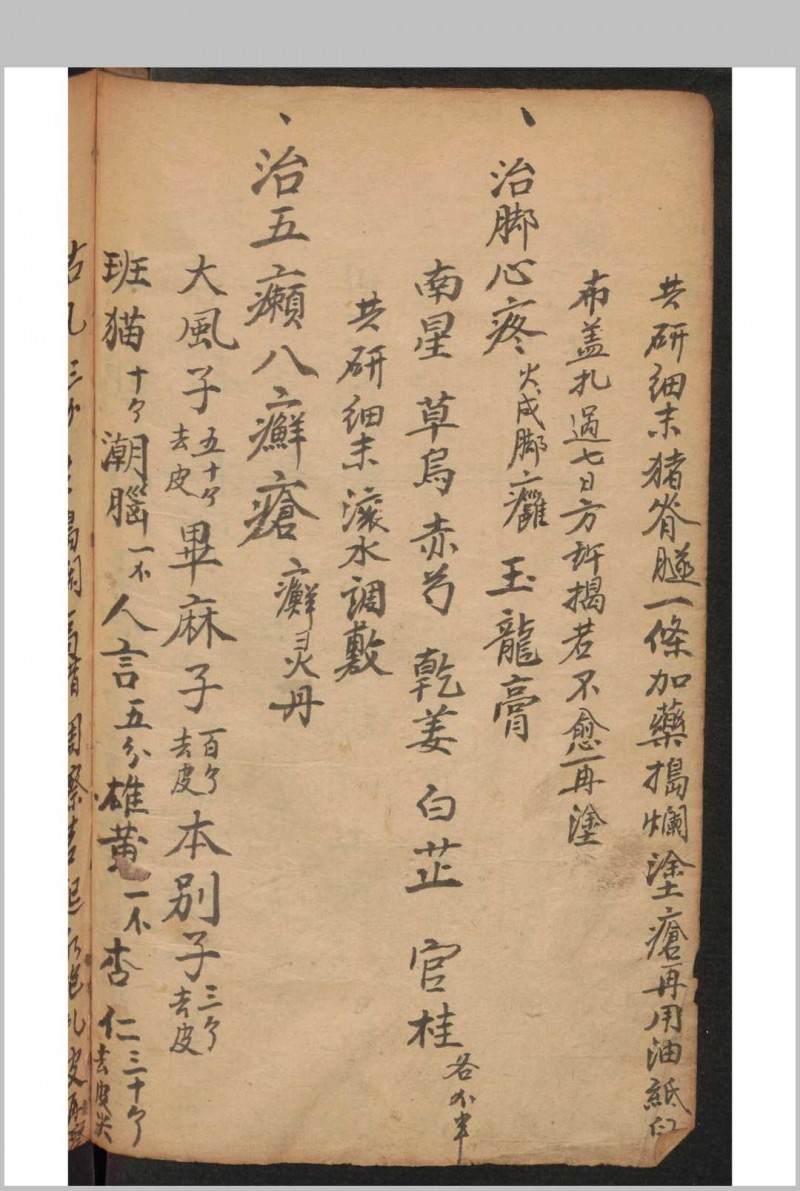 共研細末猪脊膸一條加藥搗爛塗瘡再用油紙
布盖扎過七日方許揭若不愈再塗
、治脚心疼 火成脚癰 玉龍膏
南星 草烏 赤芍 乾姜 白芷 官桂 各半
共研細末滚水調敷
、治五癩八癬瘡 癬灵丹
大風子 五十个去皮 畢麻子 百个去皮 本別子 三个去皮
班猫 十个 潮腦 一个 人言 五分 雄黄 一个 杏仁 三十个去皮尖